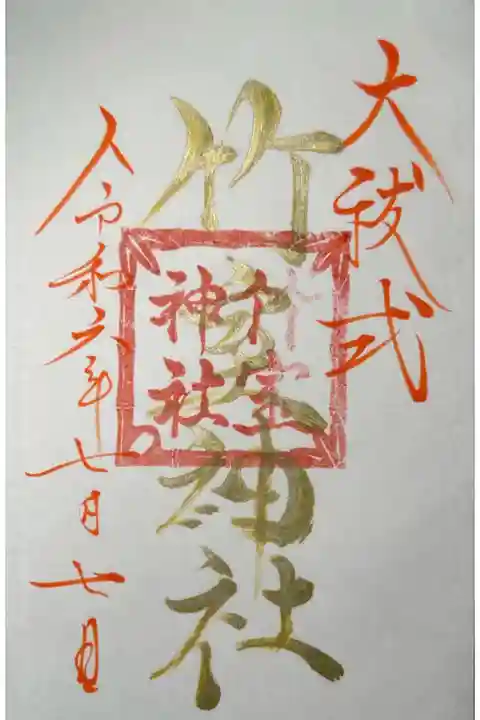 大祓式
竹神社
神社
令和六年七月七日